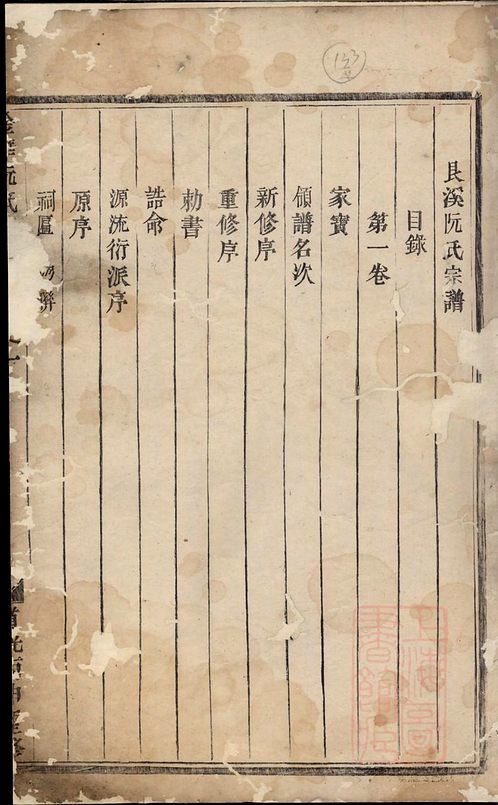 153
艮溪阮氏宗譜
目錄
第一卷
家寶
領譜名次
新修序
重修序
勅書
誥命
源流衍派序
原序
祠匾
阮氏
上海圖書館藏